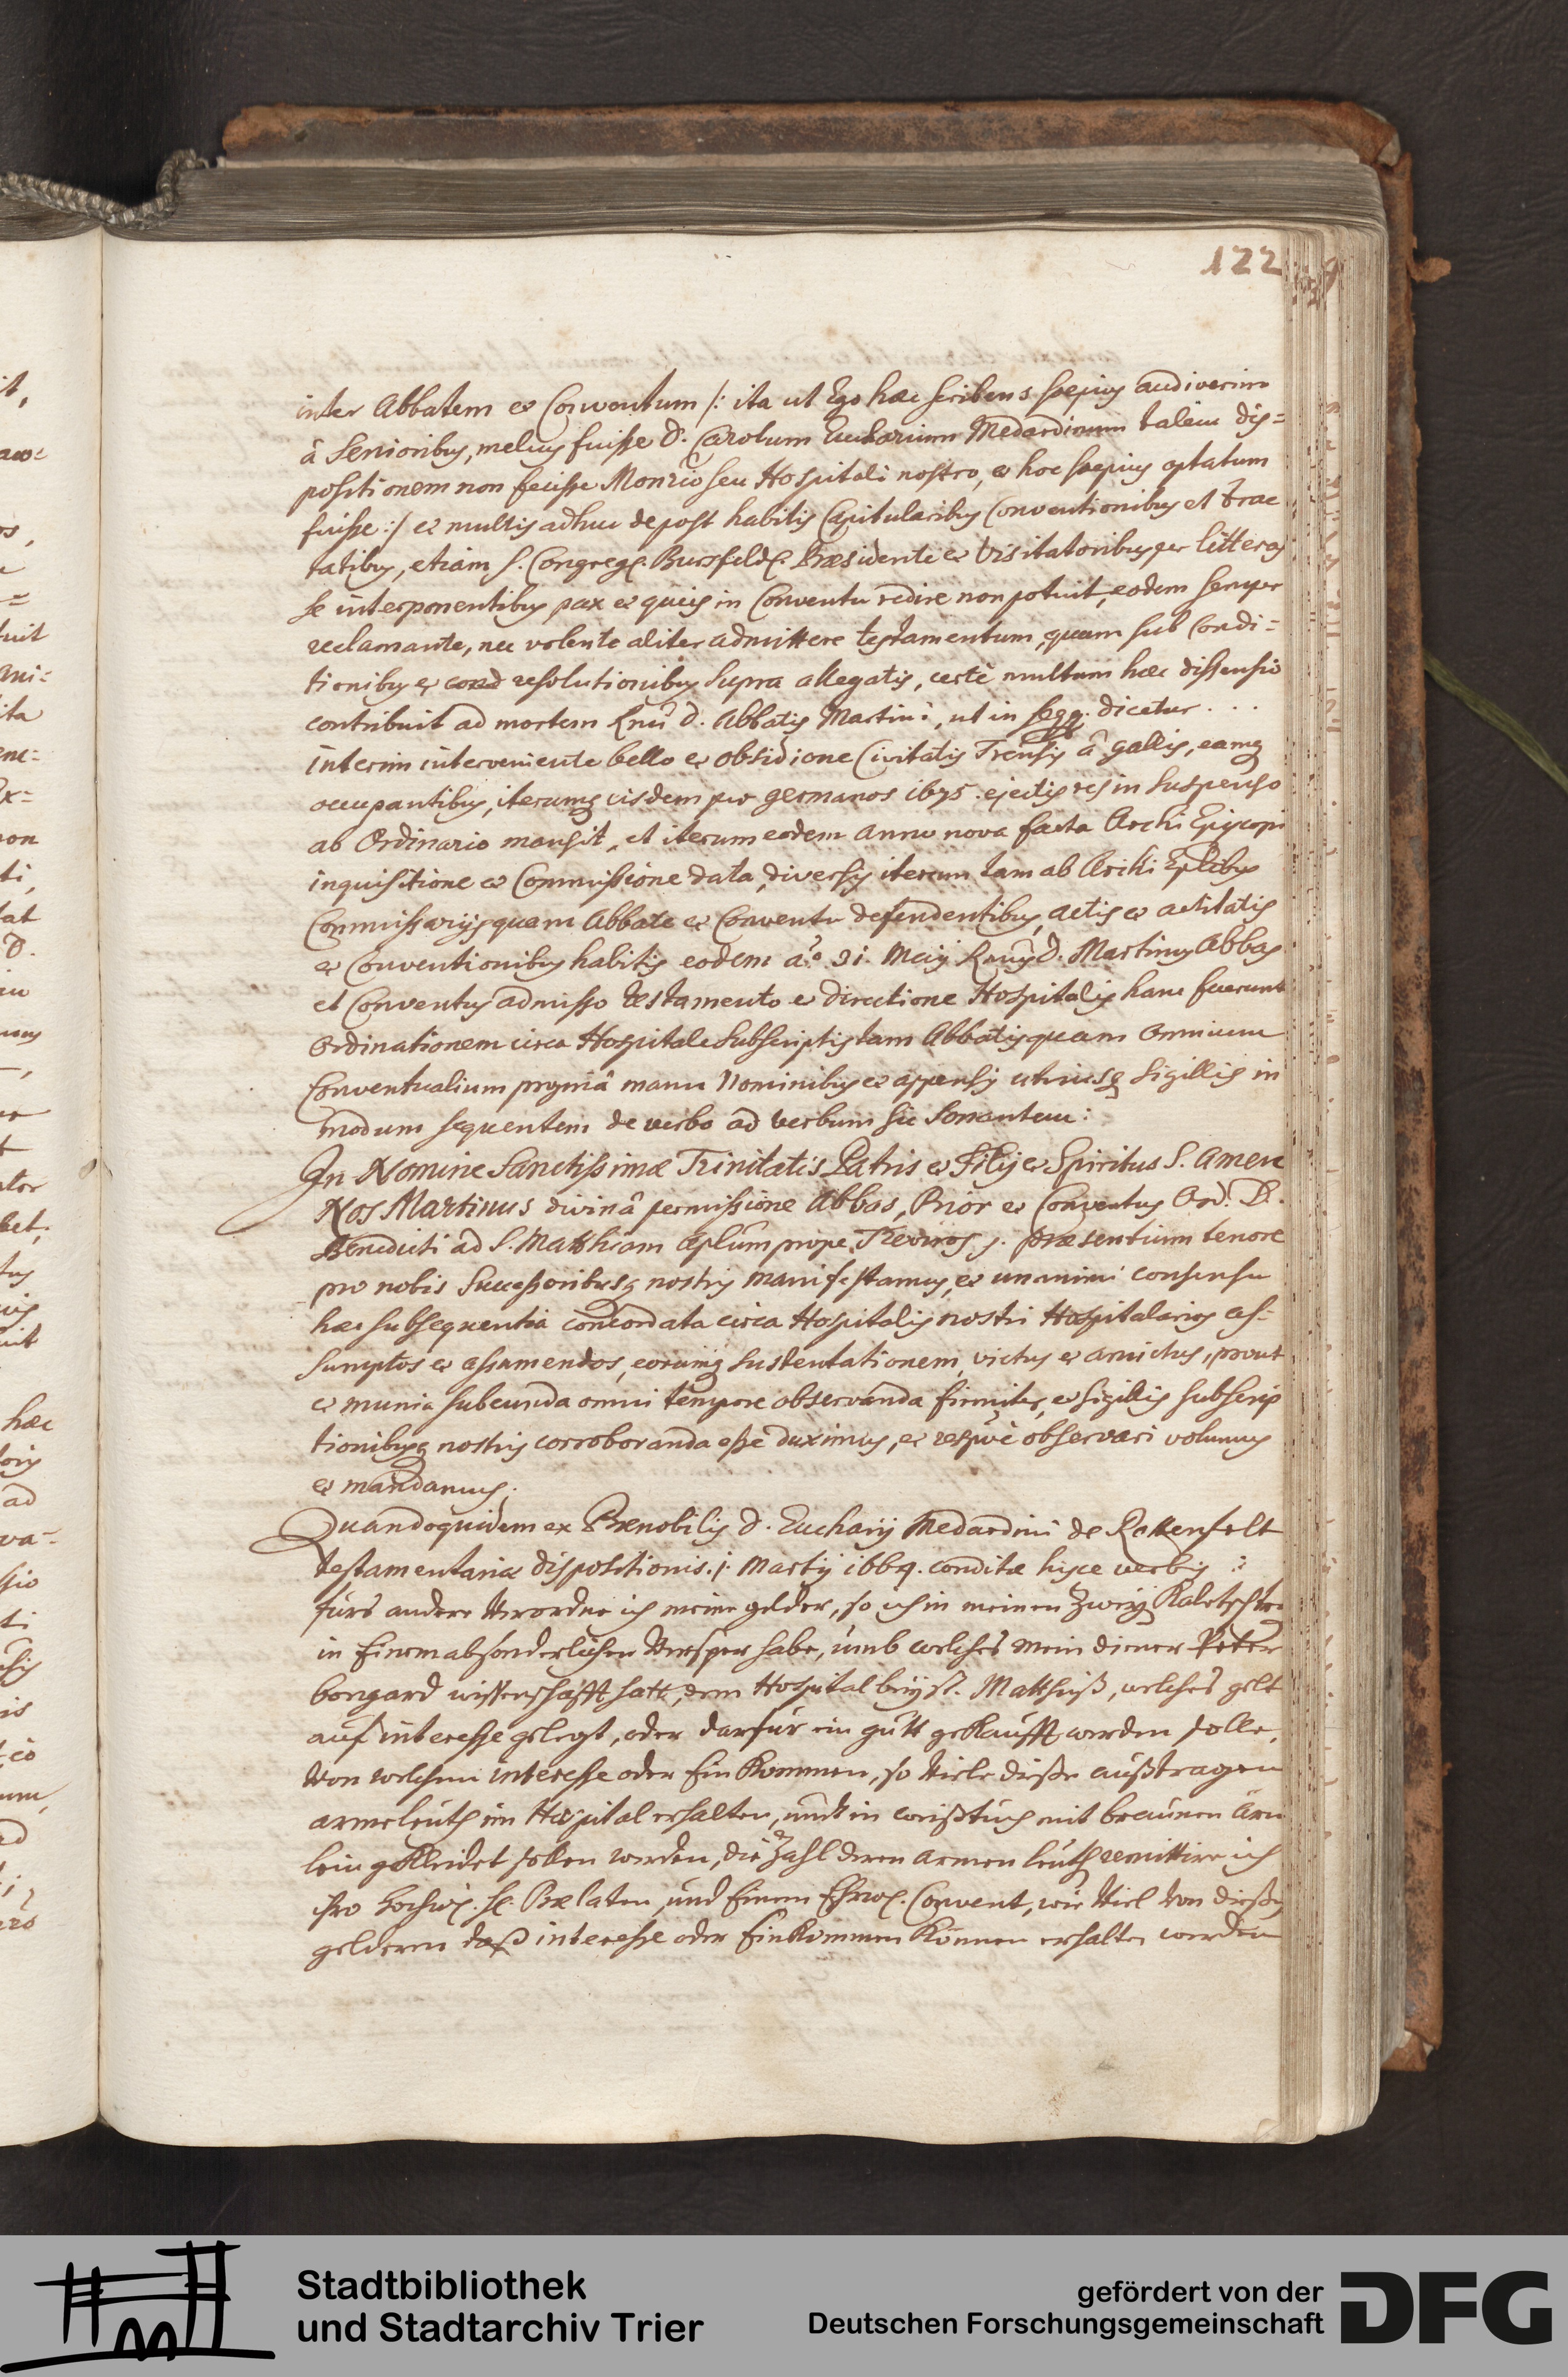 122
inter Abbatem et Conventum /: ita ut Ego haec scribens saepius audiverim
à Senioribus, melius fuisse D. Carolum Eucharium Medardinum talem dis=
positionem non fecisse Monrio seu Hospitali nostro, et hoc saepius optatum
fuisse :/ et multis adhuc depost habitis Capitularibus Conventionibus et trac
tatibus, etiam S. Congreg. Bursfeld. Praesidente et Visitatoribus per litteras
se interponentibus pax et quies in Conventu redire non potuit, eodem semper
reclamante, nec volente aliter admittere testamentum, quam sub Condi=
tionibus et cond resolutionibus supra allegatis, certè multum haec dissensio
contribuit ad mortem Rmi D. Abbatis Martini, ut in seqq. dicetur . . .
interim interveniente bello et obsidione Civitatis Trensis â gallis, eamq
occupantibus, iterumq eisdem per germanos 1675. ejectis res in suspenso
ab Ordinario mansit, et iterum eodem anno nova facta Archi Episcopi
inquisitione et Commissione data, diversis iterum tam ab Archi Eplibus
Commissarijs quam Abbate et Conventu defendentibus, actis et actitatis
et Conventionibus habitis eodem aō. 31. Maij Rmus D. Martinus Abbas
et Conventus admisso testamento et directione Hospitalis hanc fecerunt
Ordinationem circa Hospitale subscriptis tam Abbatis quam omnium
Conventualium propriâ manu Nominibus et appensis utriusq Sigillis in
modum sequentem de verbo ad verbum sic Sonantem:
In Nomine Sanctissimae Trinitatis Patris et Filij et Spiritus S. Amen
Nos Martinus divinâ permissione Abbas, Prior et Conventus Ord. D.
Benedicti ad S. Matthiam Aplum prope Treviros j. praesentium tenore
pro nobis Successoribusq nostris manifestamus, et unanimi consensu
haec subsequentia concordata circa Hospitalis nostri Hospitalarios as=
sumptos et assumendos, eorumq sustentationem, victus et amictus, prout
et munia subeunda omni tempore observanda firmiter, et Sigillis subscrip
tionibusq nostris corroboranda esse duximus, et respivè observari volumus
et mandamus.
Quandoquidem ex Praenobilis D. Eucharij Medardini de Rottenfelt
testamentaria dispositionis. 1. Martij 1664. conditae hisce verbis :
fürs andere Verordne ich meine gelder, so ich in meinen Zweij Kaletschen
in Einem absonderlichen Versper habe, umb welches mein diener Peter
bongard wissenschafft hatt, dem Hospital beij St. Matthiß, welches gelt
auf interesse gelegt, oder darfür ein gutt gekaufft werden solle,
Von welchem interesse oder Einkommen, so Viele diese außtragen
arme leuth im Hospital erhalten, undt in weißtuch mit braunen Arm
lein gekleidet sollen werden, die Zahl deren armen leuth remittire ich
ihro hochw. H. Praelaten, und Einem Ehrw. Convent, wie Viel Von dießen
gelderen daß interesse oder Einkommen können erhalten werden
Stadtbibliothek
und Stadtarchiv Trier
gefördert von der
Deutschen Forschungsgemeinschaft
DFG